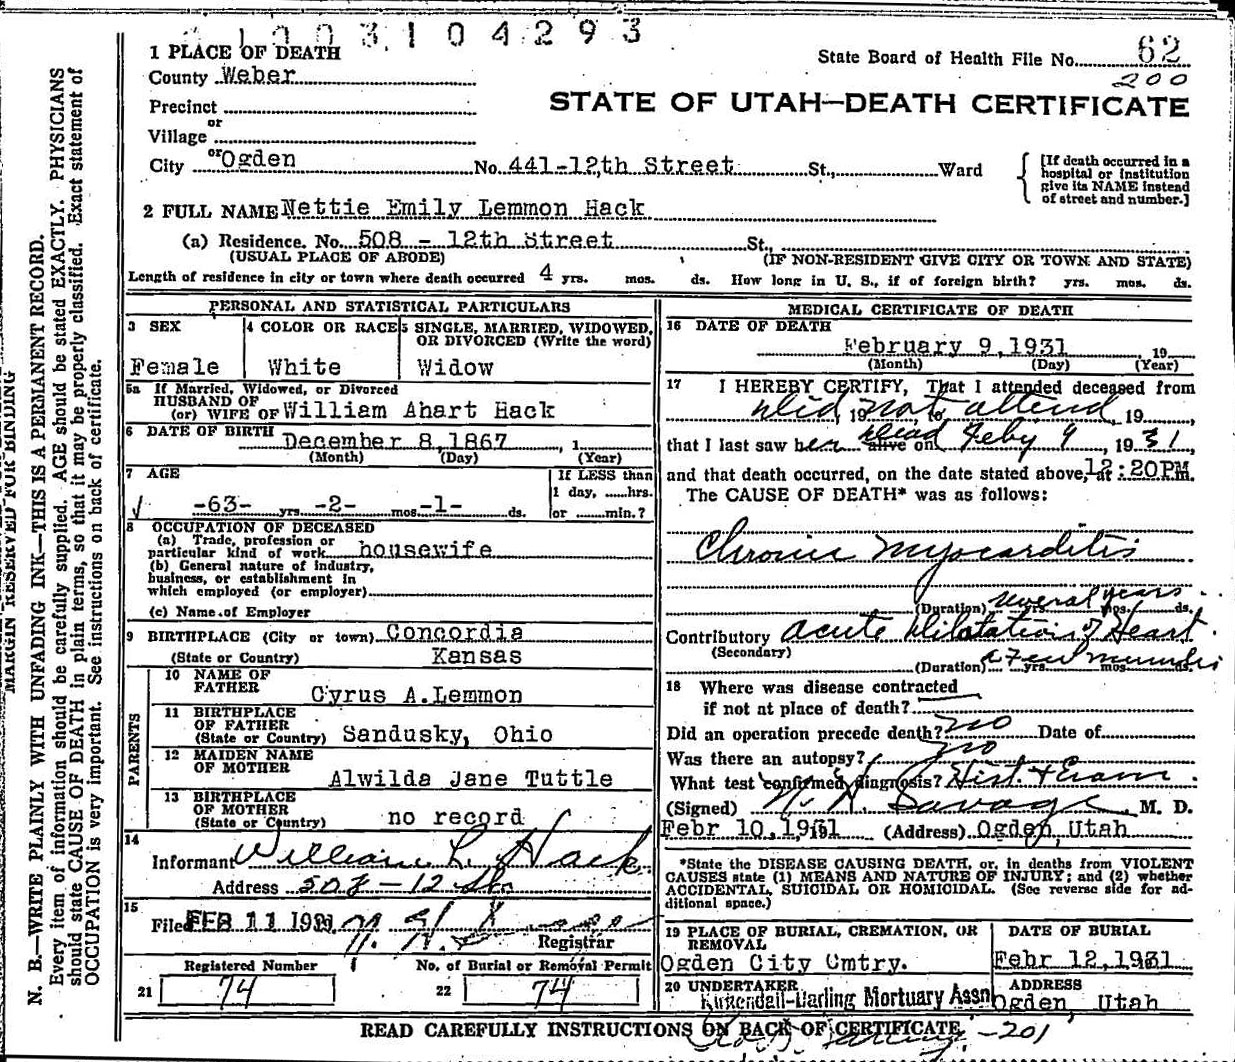 1003104293
1 PLACE OF DEATH
State Board of Health File No. 62
County Weber
200
STATE OF UTAH—DEATH CERTIFICATE
Precinct
or
Village
or
City Ogden No. 441-12th Street St., Ward
[If death occurred in a hospital or institution give its NAME instead of street and number.]
2 FULL NAME Nettie Emily Lemmon Hack
(a) Residence. No. 508 - 12th Street St.,
(USUAL PLACE OF ABODE) (IF NON-RESIDENT GIVE CITY OR TOWN AND STATE)
Length of residence in city or town where death occurred 4 yrs. mos. ds. How long in U. S., if of foreign birth? yrs. mos. ds.
PERSONAL AND STATISTICAL PARTICULARS
3 SEX 4 COLOR OR RACE 5 SINGLE, MARRIED, WIDOWED,
OR DIVORCED (Write the word)
Female White Widow
5a If Married, Widowed, or Divorced
HUSBAND OF
(or) WIFE OF William Ahart Hack
6 DATE OF BIRTH December 8,1867 , 1
(Month) (Day) (Year)
7 AGE If LESS than
1 day, ......hrs.
-63- yrs -2- mos -1- ds. or ......min.?
8 OCCUPATION OF DECEASED
(a) Trade, profession or
particular kind of work housewife
(b) General nature of industry,
business, or establishment in
which employed (or employer)
(c) Name of Employer
9 BIRTHPLACE (City or town) Concordia
(State or Country) Kansas
PARENTS
10 NAME OF
FATHER Cyrus A.Lemmon
11 BIRTHPLACE
OF FATHER
(State or Country) Sandusky, Ohio
12 MAIDEN NAME
OF MOTHER Alwilda Jane Tuttle
13 BIRTHPLACE
OF MOTHER
(State or Country) no record
14
Informant William L. Hack
Address 508 - 12 St
15
Filed FEB 11 1931
Registrar
Registered Number No. of Burial or Removal Permit
21 74 22 74
MEDICAL CERTIFICATE OF DEATH
16 DATE OF DEATH
February 9,1931 , 19
(Month) (Day) (Year)
17 I HEREBY CERTIFY, That I attended deceased from
Did , 19 not to attend , 19 ,
that I last saw her alive on dead Feby 9 , 1931
and that death occurred, on the date stated above, at 12:20PM.
The CAUSE OF DEATH* was as follows:
Chronic Myocarditis
(Duration) several years yrs. mos. ds.
Contributory Acute Dilatation of Heart
(Secondary)
(Duration) a few minutes yrs. mos. ds.
18 Where was disease contracted
if not at place of death?
Did an operation precede death? no Date of
Was there an autopsy? no
What test confirmed diagnosis? Hist. + Exam.
(Signed) Savage, M. D.
Febr 10, 1931 (Address) Ogden, Utah
*State the DISEASE CAUSING DEATH, or, in deaths from VIOLENT
CAUSES state (1) MEANS AND NATURE OF INJURY; and (2) whether
ACCIDENTAL, SUICIDAL OR HOMICIDAL. (See reverse side for ad-
ditional space.)
19 PLACE OF BURIAL, CREMATION, OR
REMOVAL
DATE OF BURIAL
Ogden City Cmtry. Febr 12,1931
20 UNDERTAKER ADDRESS
Kirkendall-Darling Mortuary Assn Ogden, Utah
READ CAREFULLY INSTRUCTIONS ON BACK OF CERTIFICATE.
-201
MARGIN RESERVED FOR BINDING
N. B.—WRITE PLAINLY WITH UNFADING INK—THIS IS A PERMANENT RECORD.
Every item of information should be carefully supplied. AGE should be stated EXACTLY. PHYSICIANS
should state CAUSE OF DEATH in plain terms, so that it may be properly classified. Exact statement of
OCCUPATION is very important. See instructions on back of certificate.